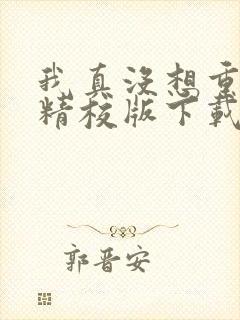 我真没想重
精校版下载
郭晋安